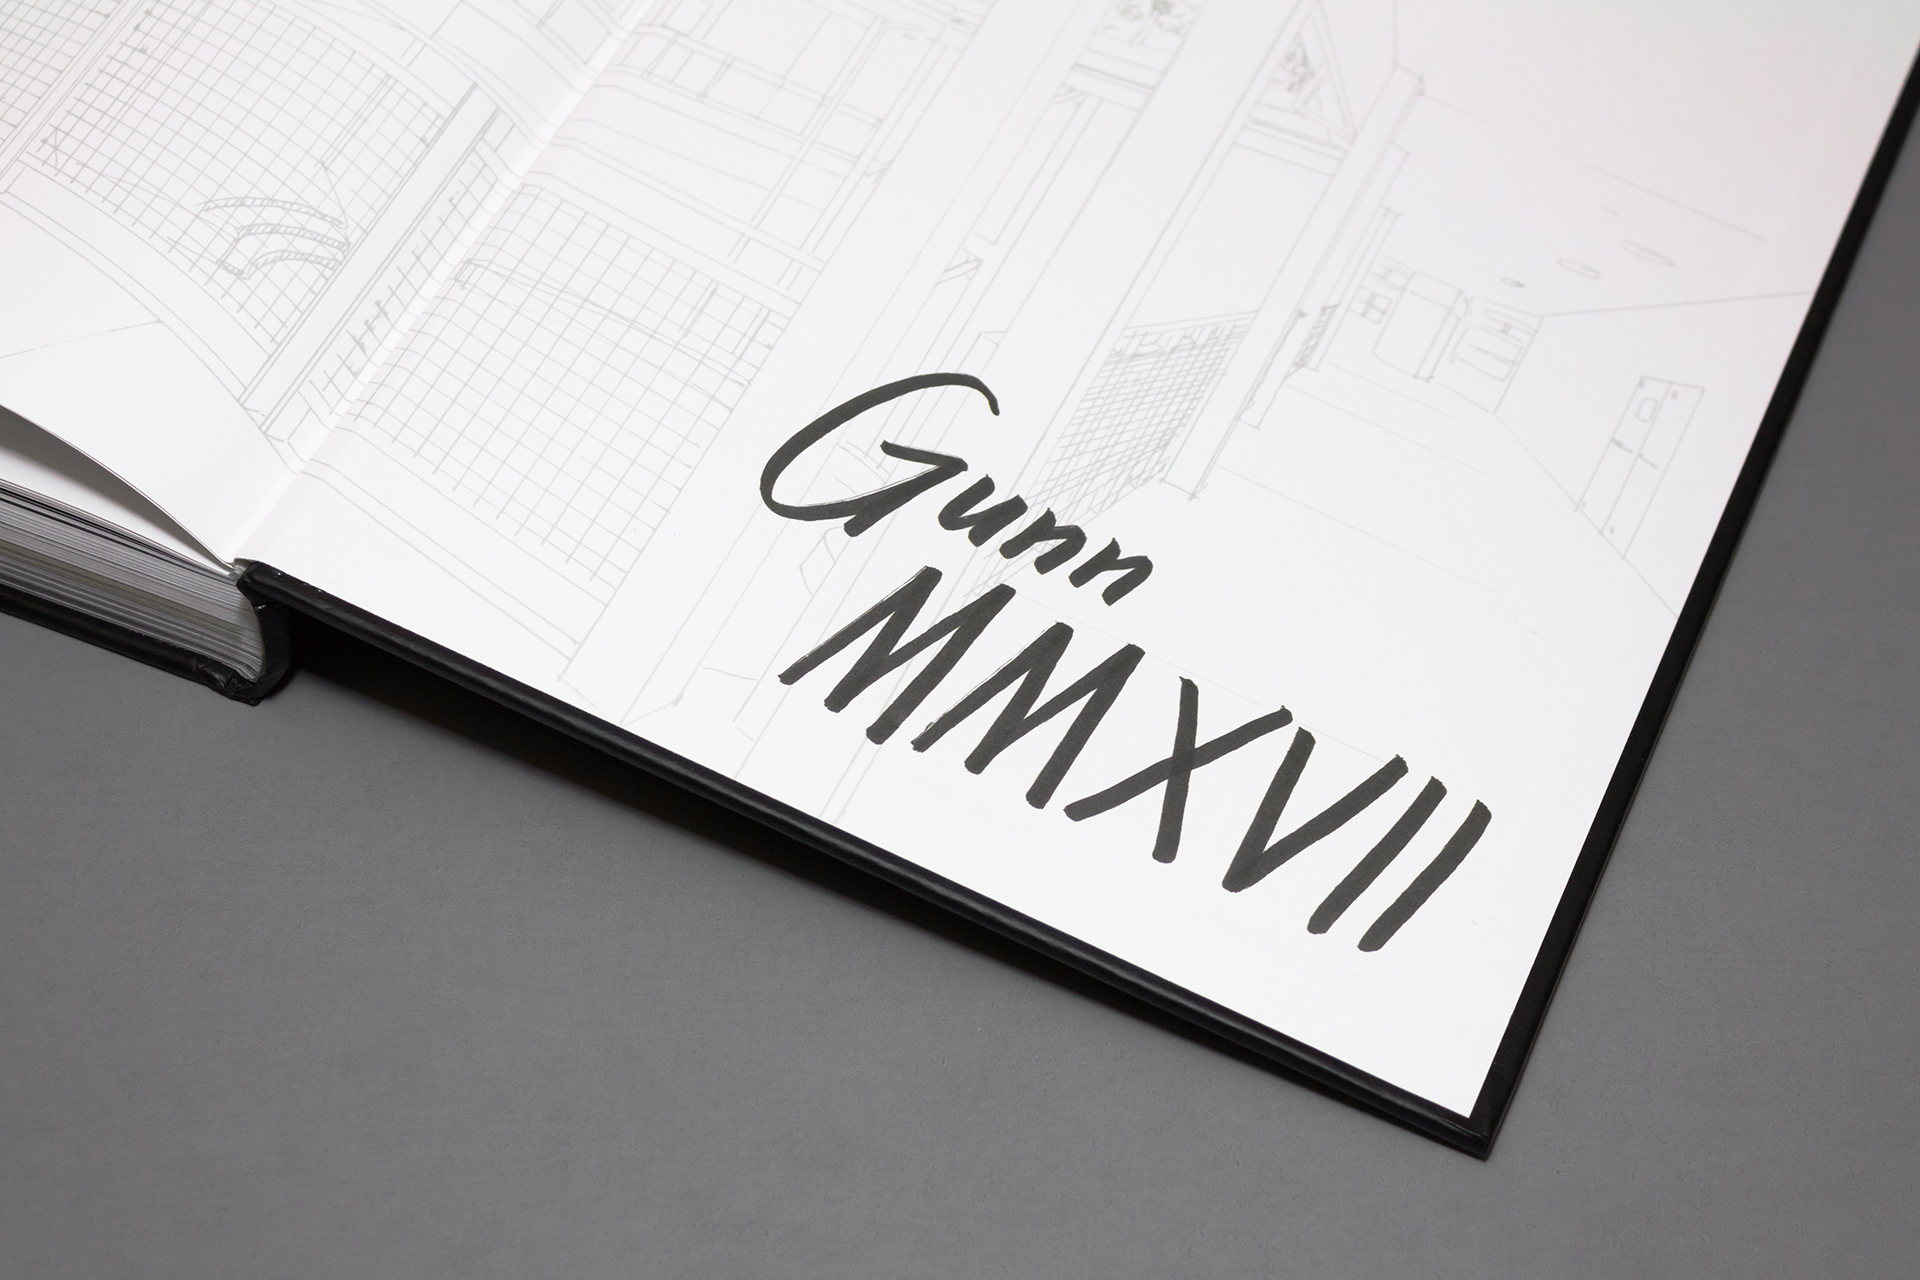 Gunn
MMXVII